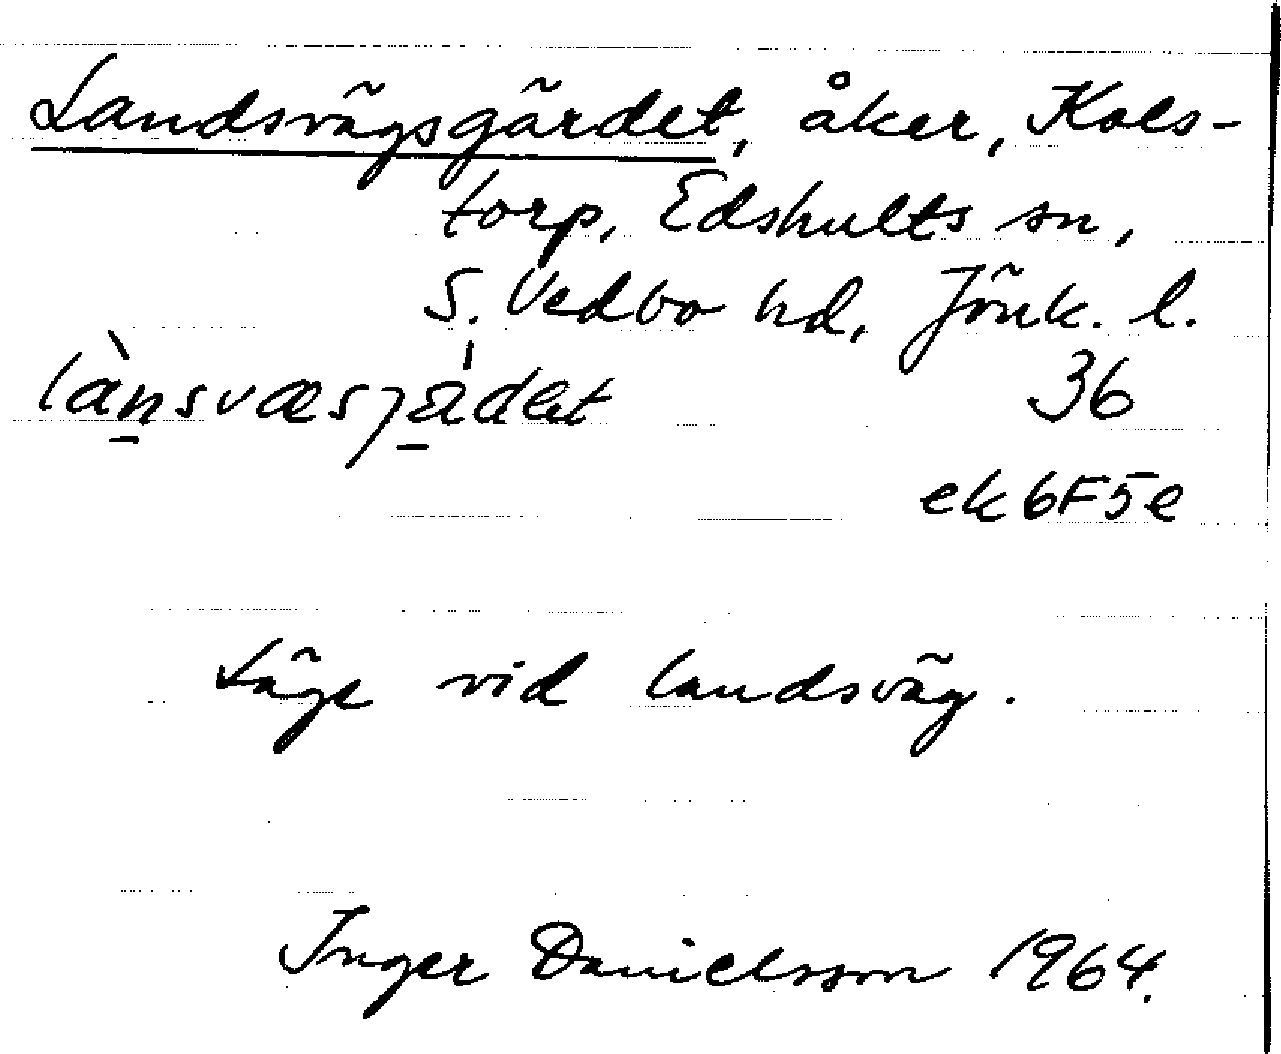 Landsvägsgärdet, åker, Kols-
torp, Edshults sn,
S. Vedbo hd, Jönk. l.
36
ek 6F5e
Läge vid landsväg.
Inger Danielsson 1964.